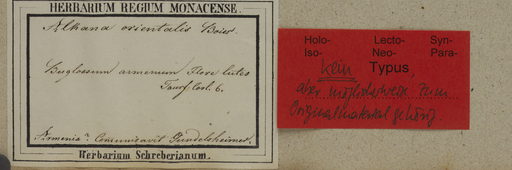 HERBARIUM REGIUM MONACENSE.
Alkana orientalis Boiss.
Buglossum armenum Flore luteo
Tourf. Corl. 6.
Armenia? Communicavit Gundelsheimer.
Herbarium Schreberianum.
Holo- Lecto- Syn-
Iso- Neo- Para-
Kein Typus,
aber möglicherweise zum
Originalmaterial gehörig.